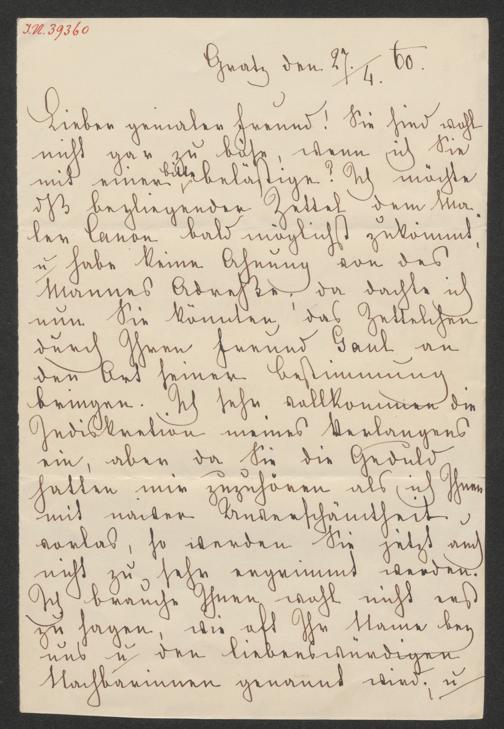 I.N. 39360
Gratz den 27./4. 60.
Lieber genialer Freund! Sie sind wohl
nicht gar zu böse, wenn ich Sie
mit einer bitte belästige? Ich möchte
dß beyliegender Zettel dem Ma-
ler Canon bald möglichst zukömmt,
u habe keine Ahnung von des
Mannes Adresse, da dachte ich
nun Sie könnten das Zettelchen
durch Ihren Freund Gaul an
den Ort seiner Bestimmung
bringen. Ich sehe vollkommen die
Indiskretion meines Verlangens
ein, aber da Sie die Geduld
hatten mir zuzuhören als ich Ihnen
mit naiver Unverschämtheit
vorlas, so werden Sie jetzt auch
nicht zu sehr ergrimmt werden.
Ich brauche Ihnen wohl nicht erst
zu sagen, wie oft Ihr Name bey
uns u den liebenswürdigen
Nachbarinnen genannt wird, u